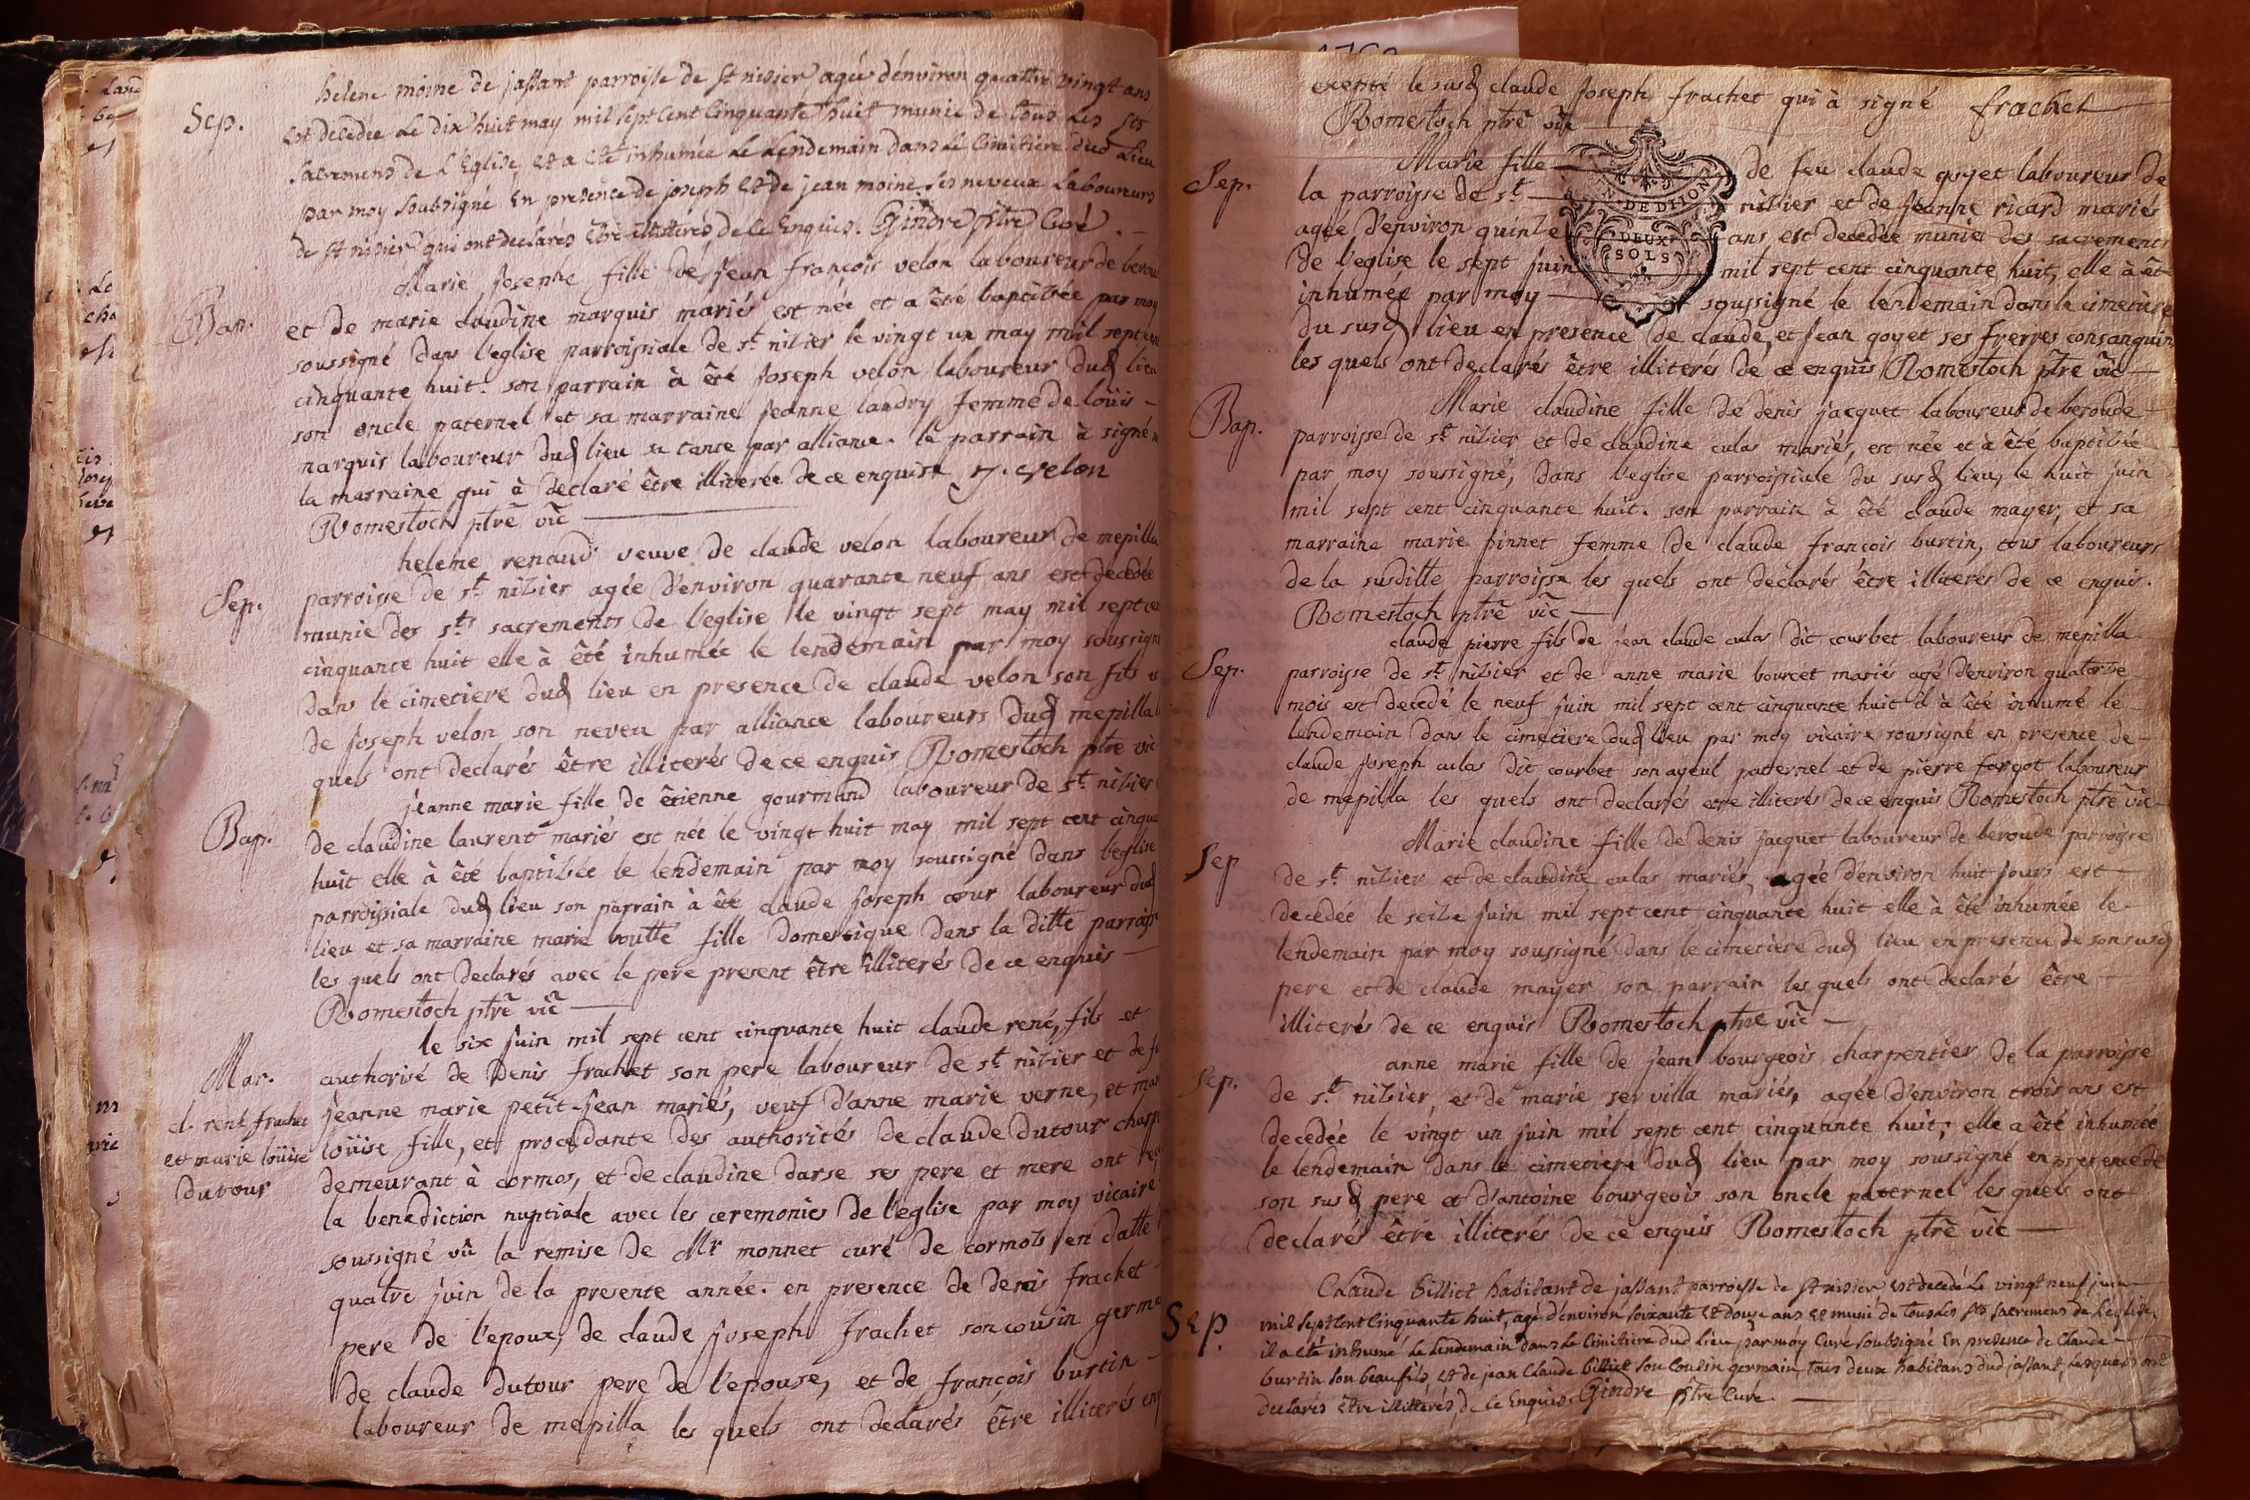 Sep.
helene moine de jassant parroisse de st nisier agée d'environ quattre vingt ans
est decedée Le dix huit may mil sept Cent Cinquante huit munie de tous Les sts
Sacremens de L'Eglise, et a eté inhumée Le Lendemain dans Le Cimitiere dud Lieu
par moy soubsigné En presence de joseph et de jean moine ses neveux Laboureurs
de st nisier qui ont declarés être illittérés de Ce Enquis. Gindre ptre Curé.
Bap.
Marie Josephe fille de Jean françois velon laboureur de berou
et de marie claudine marquis mariés est née et a été baptisée par moy
soussigné dans l'eglise parroissiale de st nizier le vingt un may mil sept cent
cinquante huit. son parrain à été Joseph velon laboureur dud lieu
son oncle paternel et sa marraine Jeanne landry femme de loüis
narquis laboureur dud lieu sa tante par alliance. le parrain à signé n
la marraine qui à declaré être illiterée de ce enquise J. velon
Romestoch ptrē vic̄
Sep.
helene renaud veuve de claude velon laboureur de mepilla
parroisse de st nizier agée d'environ quarante neuf ans est decedée
munie des sts sacrements de l'eglise le vingt sept may mil sept ce
cinquante huit elle à été inhumée le lendemain par moy soussigné
dans le cimetiere dud lieu en presence de claude velon son fils
de Joseph velon son neveu par alliance laboureurs dud mepilla
quels ont declarés être illiterés de ce enquis Romestoch ptre vic
Bap.
jeanne marie fille de êtienne gourmand laboureur de st nizier
de claudine laurent mariés est née le vingt huit may mil sept cent cinqua
huit elle à été baptisée le lendemain par moy soussigné dans l'eglise
parroissiale dud lieu son parrain à été claude Joseph cœur laboureur dud
lieu et sa marraine marie boutte fille domestique dans la ditte parroiss
les quels ont declarés avec le pere present être illiterés de ce enquis
Romestoch ptrē vic̄
Mar.
cl. rené frachet
et marie loüise
dutour
le six juin mil sept cent cinquante huit claude rené, fils et
authorisé de Denis frachet son pere laboureur de st nizier et de f
jeanne marie petit-Jean mariés, veuf d'anne marie verne, et mar
loüise fille, et procedante des authorités de claude dutour
demeurant à cormos, et de claudine darse ses pere et mere ont
la benediction nuptiale avec les ceremonies de l'eglise par moy vicaire
soussigné vû la remise de Mr monnet curé de cormots en datte
quatre juin de la presente année. en presence de denis frachet
pere de l'epoux, de claude Joseph frachet son cousin germa
de claude dutour pere de l'epouse, et de françois burtin
laboureur de mepilla les quels ont declarés être illiterés enq
excepté le susd claude Joseph frachet qui à signé frachet
Romestoch ptrē vic̄
Sep.
Marie fille de feu claude goyet laboureur de
la parroisse de st nizier et de Jeanne ricard mariés
agée d'environ quinze ans est decedée munie des sacrements
de l'eglise le sept juin mil sept cent cinquante huit, elle à êté
inhumée par moy soussigné le lendemain dans le cimetiere
du susd lieu en presence de claude, et Jean goyet ses frerres consanguin
les quels ont declarés être illiterés de ce enquis Romestoch ptrē vic̄
DE DIJON
DEUX
SOLS
Bap.
Marie claudine fille de denis jacquet laboureur de beroude
parroisse de st nizier et de claudine culas mariés, est née et à été baptisée
par moy soussigné, dans l'eglise parroissiale du susd lieu, le huit juin
mil sept cent cinquante huit. son parrain à été claude mayer, et sa
marraine marie pinnet femme de claude françois burtin, tous laboureurs
de la susditte parroisse les quels ont declarés être illiterés de ce enquis.
Romestoch ptrē vic̄
Sep.
claude pierre fils de jean claude culas dit courbet laboureur de mepilla
parroisse de st nizier et de anne marie bourcet mariés agé d'environ quatorze
mois est decedé le neuf juin mil sept cent cinquante huit il à été inhumé le
lendemain dans le cimetiere dud lieu par moy vicaire soussigné en presence de
claude Joseph culas dit courbet son ayeul paternel et de pierre forgot laboureur
de mepilla les quels ont declarés etre illiterés de ce enquis Romestoch ptrē vic̄
Sep
Marie claudine fille de denis jacquet laboureur de beroude parroisse
de st nizier et de claudine culas mariés, agée d'environ huit jours est
decedée le seize juin mil sept cent cinquante huit elle à été inhumée le
lendemain par moy soussigné dans le cimetiere dud lieu en presence de son susd
pere et de claude mayer son parrain les quels ont declaré être
illiterés de ce enquis Romestoch ptre vic̄
Sep.
anne marie fille de jean bourgeois charpentier de la parroisse
de st nizier, et de marie servilla mariés, agée d'environ trois ans est
decedée le vingt un juin mil sept cent cinquante huit; elle a été inhumée
le lendemain dans le cimetiere dud lieu par moy soussigné en presence de
son susd pere et d'antoine bourgeois son oncle paternel les quels ont
declarés être illiterés de ce enquis Romestoch ptrē vic̄
Sep.
Claude billiet habitant de jassant parroisse de st nisier est decedé Le vingt neuf juin
mil sept Cent Cinquante huit, agé d'environ soixante et douze ans et muni de tous Les sts sacremens de L'eglise,
il a eté inhumé Le Lendemain dans Le Cimitiere dud Lieu par moy Curé soubsigné En presence de Claude
burtin son beaufils, et de jean Claude billiet son Cousin germain, tous deux habitans dud jassant, Lesquels ont
declarés Etre illittérés, de Ce Enquis. Gindre ptre Curé.